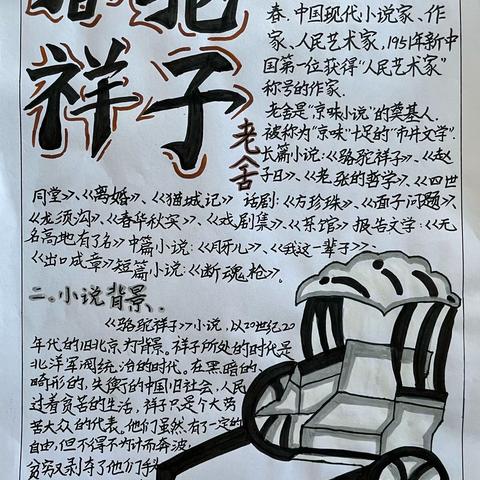 骆驼
祥子
老舍
春.中国现代小说家、作
家、人民艺术家,1951年新中
国第一位获得“人民艺术家”
称号的作家.
老舍是“京味小说”的奠基人.
被称为“京味”十足的“市井文学”.
长篇小说:《骆驼祥子》、《赵
子曰》、《老张的哲学》、《四世
同堂》、《离婚》、《猫城记》 话剧:《方珍珠》、《面子问题》、
《龙须沟》、《春华秋实》、《戏剧集》、《茶馆》报告文学:《无
名高地有了名》中篇小说:《月牙儿》、《我这一辈子》;
《出口成章》短篇小说:《断魂枪》。
二。小说背景.
《骆驼祥子》小说,以20世纪20
年代的旧北京为背景。祥子所处的时代是
北洋军阀统治的时代。在黑暗的、
畸形的,失衡的中国旧社会,人民
过着贫苦的生活,祥子只是个大劳
苦大众的代表。他们虽然有了一定的
自由,但不得不为计而奔波;
贫穷又剥夺了他们